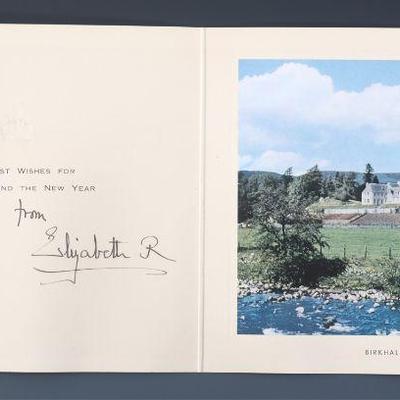 ST WISHES FOR
ND THE NEW YEAR
from
Elizabeth R
BIRKHAL